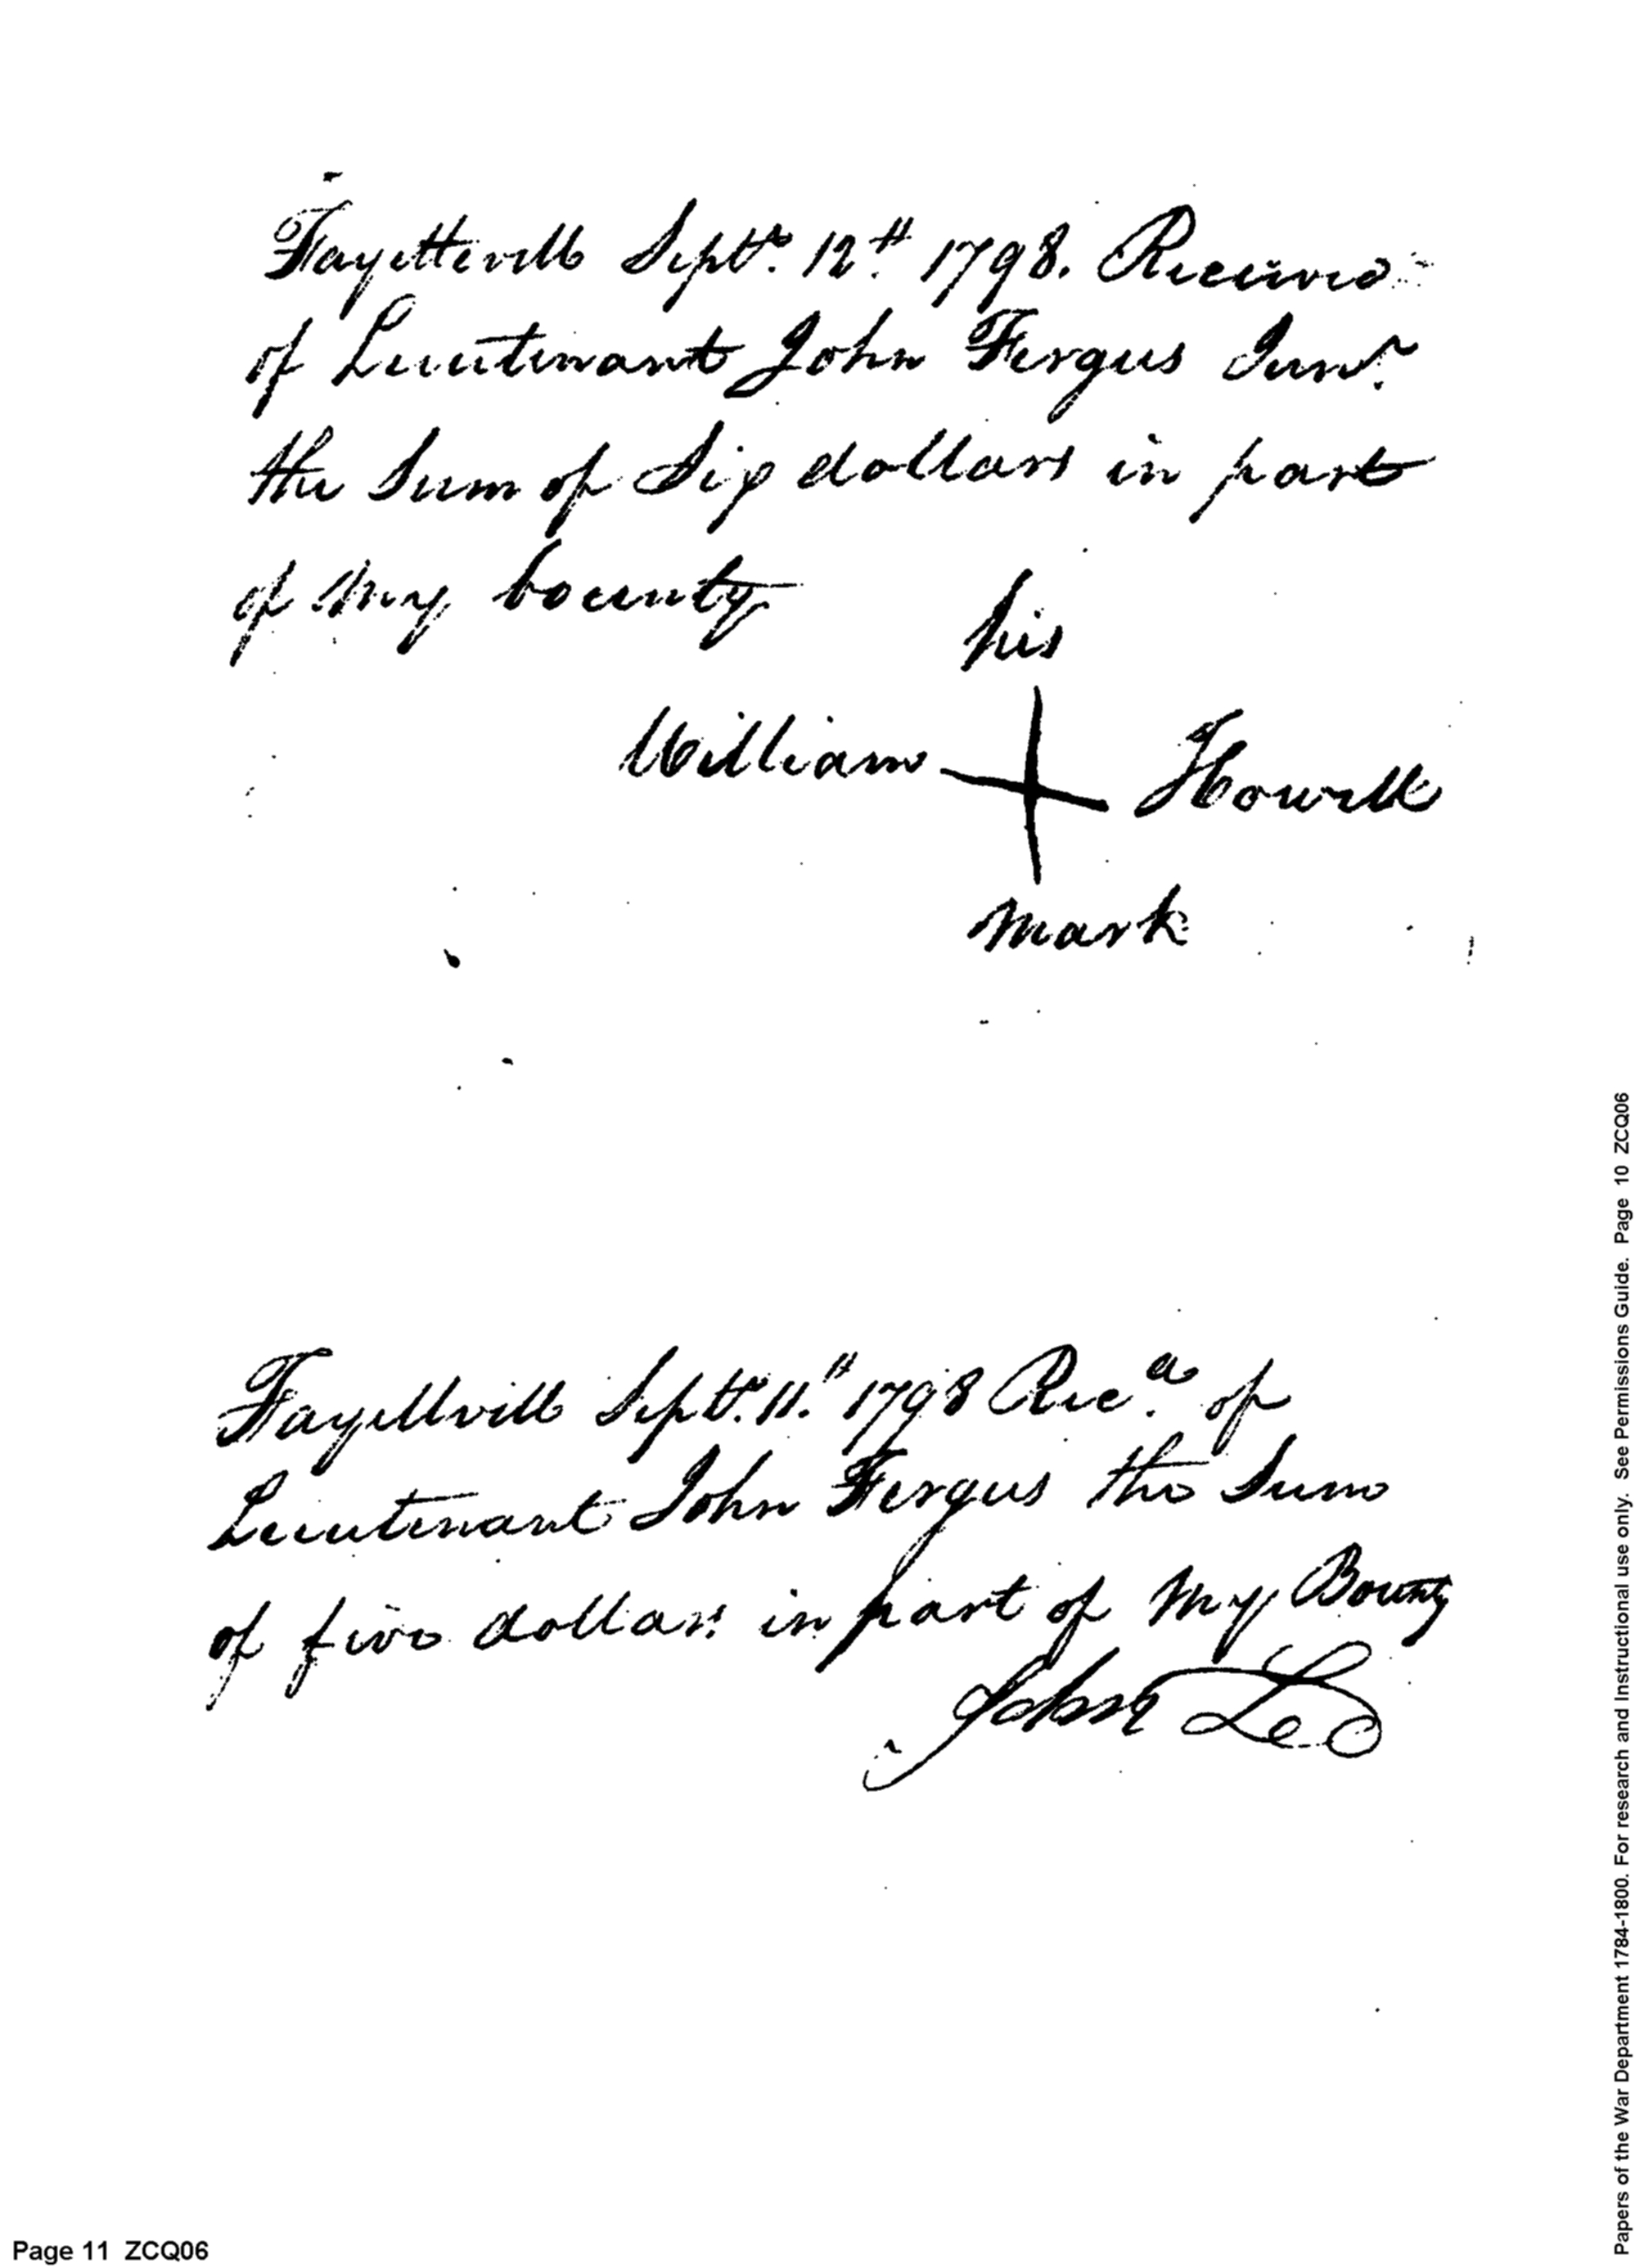 Fayetteville Septr. 12th. 1798. Received
of Lieutenant John Fergus Junr.
the Sum of Six dollars in part
of my bounty
his
William + Howell
mark
Fayettville Septr. 11th. 1798 Recd. of
Lieutenant John Fergus the Sum
of five dollars in part of my Bounty
John Lee
Page 11 ZCQ06
Papers of the War Department 1784-1800. For research and Instructional use only. See Permissions Guide. Page 10 ZCQ06